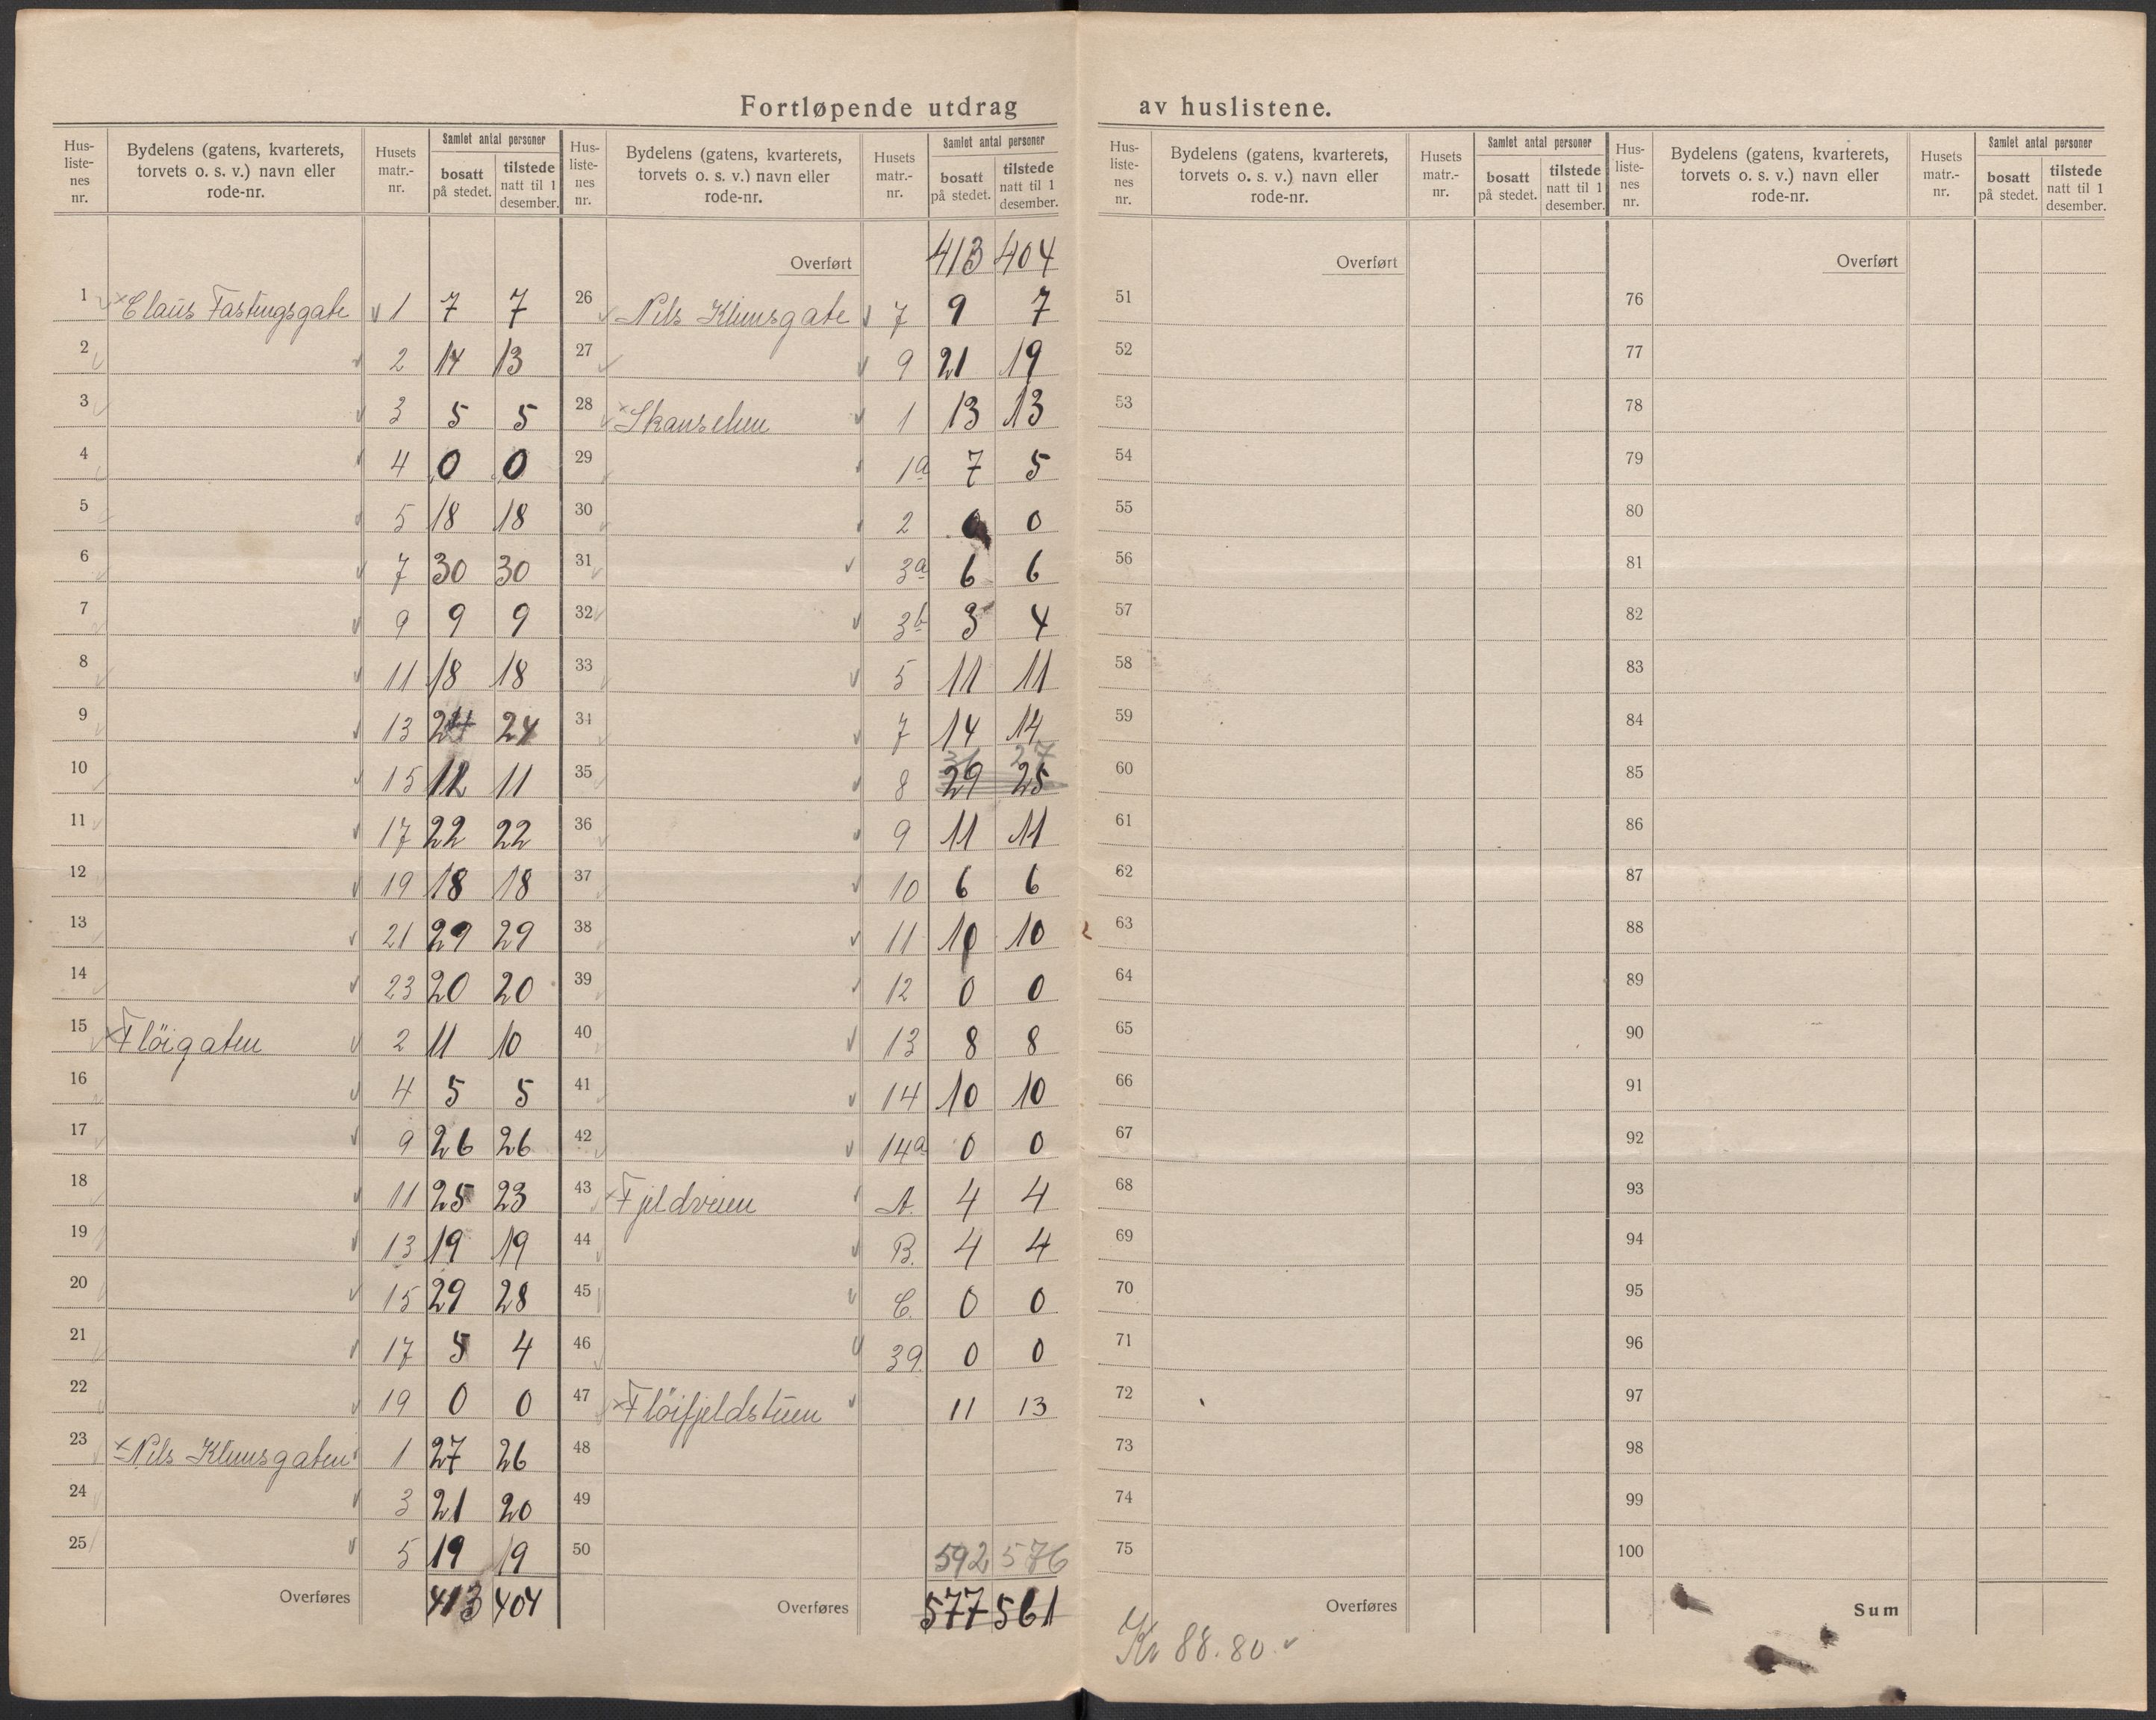 Fortløpende utdrag av huslistene.
Hus-listenes nr. Bydelens (gatens, kvarterets, torvets o. s. v.) navn eller rode-nr. Husets matr.-nr. Samlet antal personer bosatt på stedet. tilstede natt til 1 desember.
1 Claus Fastingsgate 1 7 7
2 2 14 13
3 3 5 5
4 4 0 0
5 5 18 18
6 7 30 30
7 9 9 9
8 11 18 18
9 13 24 24
10 15 12 11
11 17 22 22
12 19 18 18
13 21 29 29
14 23 20 20
15 Fløigaten 2 11 10
16 4 5 5
17 9 26 26
18 11 25 23
19 13 19 19
20 15 29 28
21 17 5 4
22 19 0 0
23 Nils Klimsgaten 1 27 26
24 3 21 20
25 5 19 19
Overføres 413 404
Hus-listenes nr. Bydelens (gatens, kvarterets, torvets o. s. v.) navn eller rode-nr. Husets matr.-nr. Samlet antal personer bosatt på stedet. tilstede natt til 1 desember.
Overført 413 404
26 Nils Klimsgate 7 9 7
27 9 21 19
28 Skanselien 1 13 13
29 1a 7 5
30 2 0 0
31 3a 6 6
32 3b 3 4
33 5 11 11
34 7 14 14
27
35 8 29 25
36 9 11 11
37 10 6 6
38 11 10 10
39 12 0 0
40 13 8 8
41 14 10 10
42 14a 0 0
43 Fjeldveien A. 4 4
44 B. 4 4
45 C. 0 0
46 39. 0 0
47 Fløifjeldstuen 11 13
48
49
50 592 576
Overføres 577 561
Hus-listenes nr. Bydelens (gatens, kvarterets, torvets o. s. v.) navn eller rode-nr. Husets matr.-nr. Samlet antal personer bosatt på stedet. tilstede natt til 1 desember.
Overført
51
52
53
54
55
56
57
58
59
60
61
62
63
64
65
66
67
68
69
70
71
72
73
74
75
Overføres
Kr 88.80.
Hus-listenes nr. Bydelens (gatens, kvarterets, torvets o. s. v.) navn eller rode-nr. Husets matr.-nr. Samlet antal personer bosatt på stedet. tilstede natt til 1 desember.
Overført
76
77
78
79
80
81
82
83
84
85
86
87
88
89
90
91
92
93
94
95
96
97
98
99
100
Sum